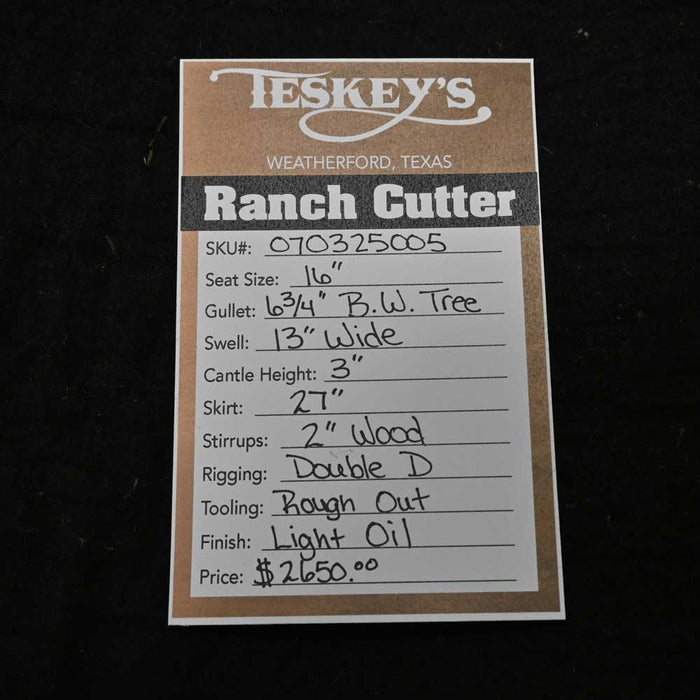 TESKEY'S
WEATHERFORD, TEXAS
Ranch Cutter
SKU#: 070325005
Seat Size: 16"
Gullet: 6 3/4" B.W. Tree
Swell: 13" Wide
Cantle Height: 3"
Skirt: 27"
Stirrups: 2" Wood
Rigging: Double D
Tooling: Rough Out
Finish: Light Oil
Price: $2650.00